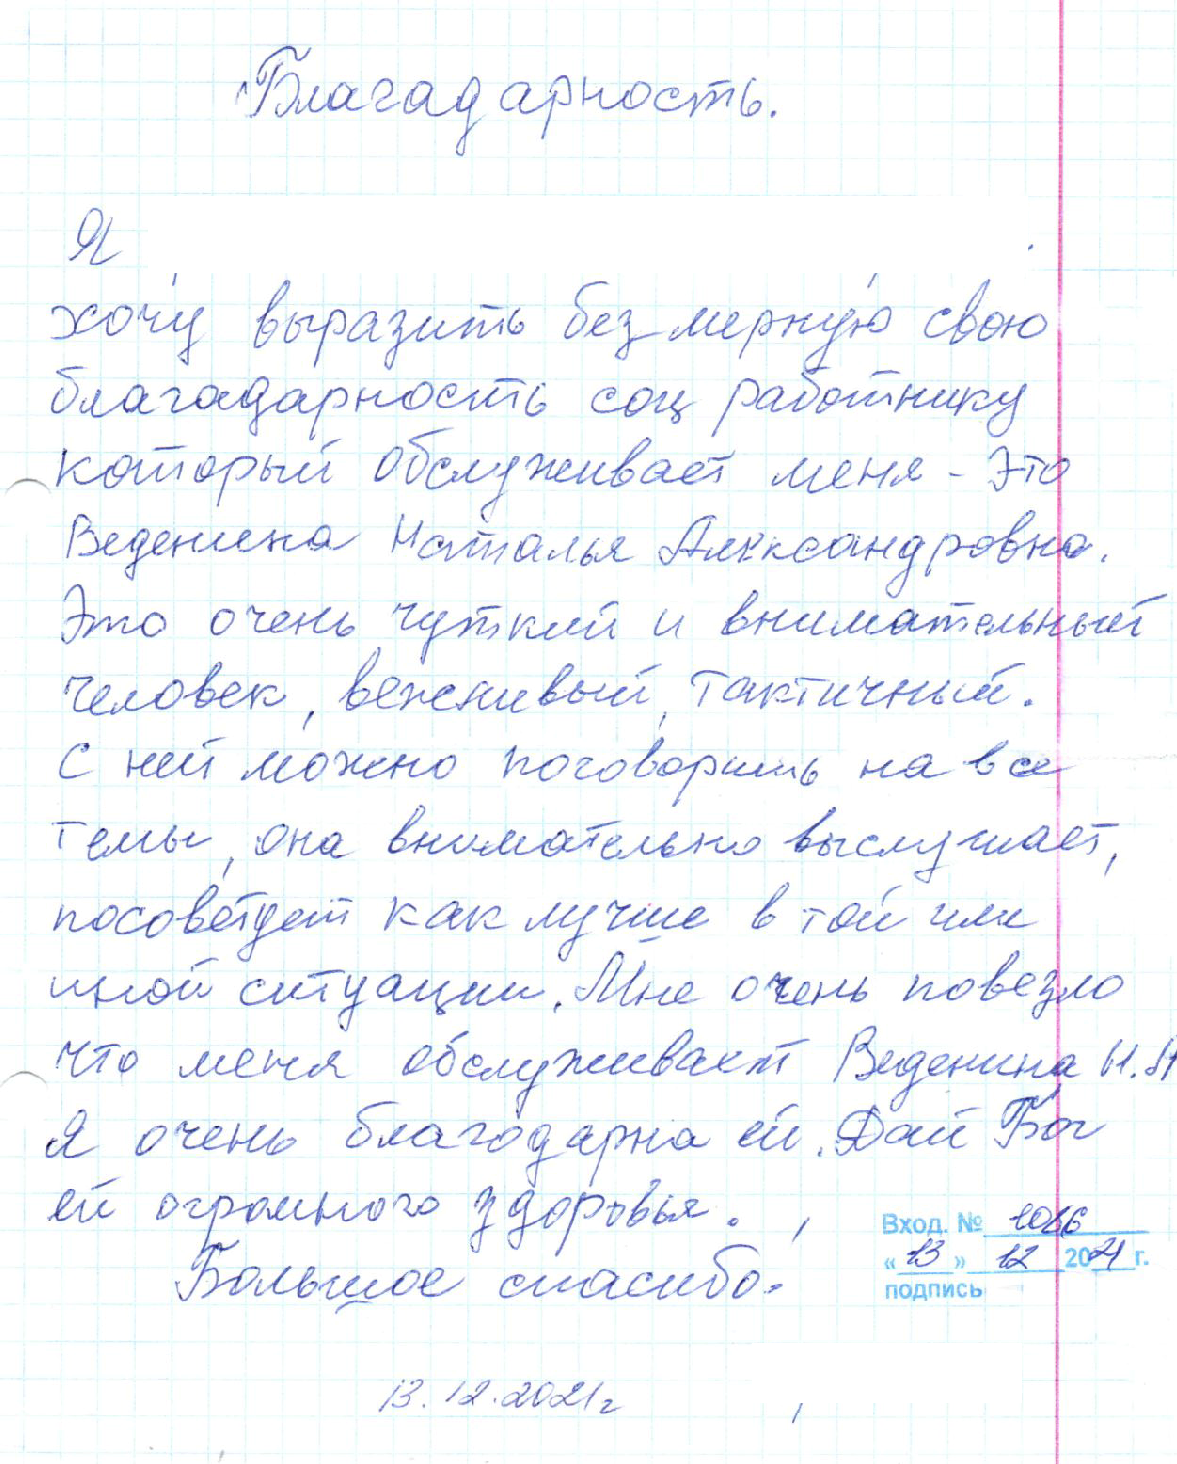 Благадарность.
Я
хочу выразить безмерную свою
благадарность соц работнику
который обслуживает меня - это
Веденина Наталья Александровна.
Это очень чуткий и внимательный
человек, вежливый, тактичный.
С ней можно поговорить на все
темы, она внимательно выслушает,
посоветует как лучше в той или
иной ситуации. Мне очень повезло
что меня обслуживает Веденина Н.А
Я очень благодарна ей. Дай Бог
ей огромного здоровья.
Вход. № 1066
Большое спасибо.
«13» 12 2021 г.
подпись
13.12.2021г